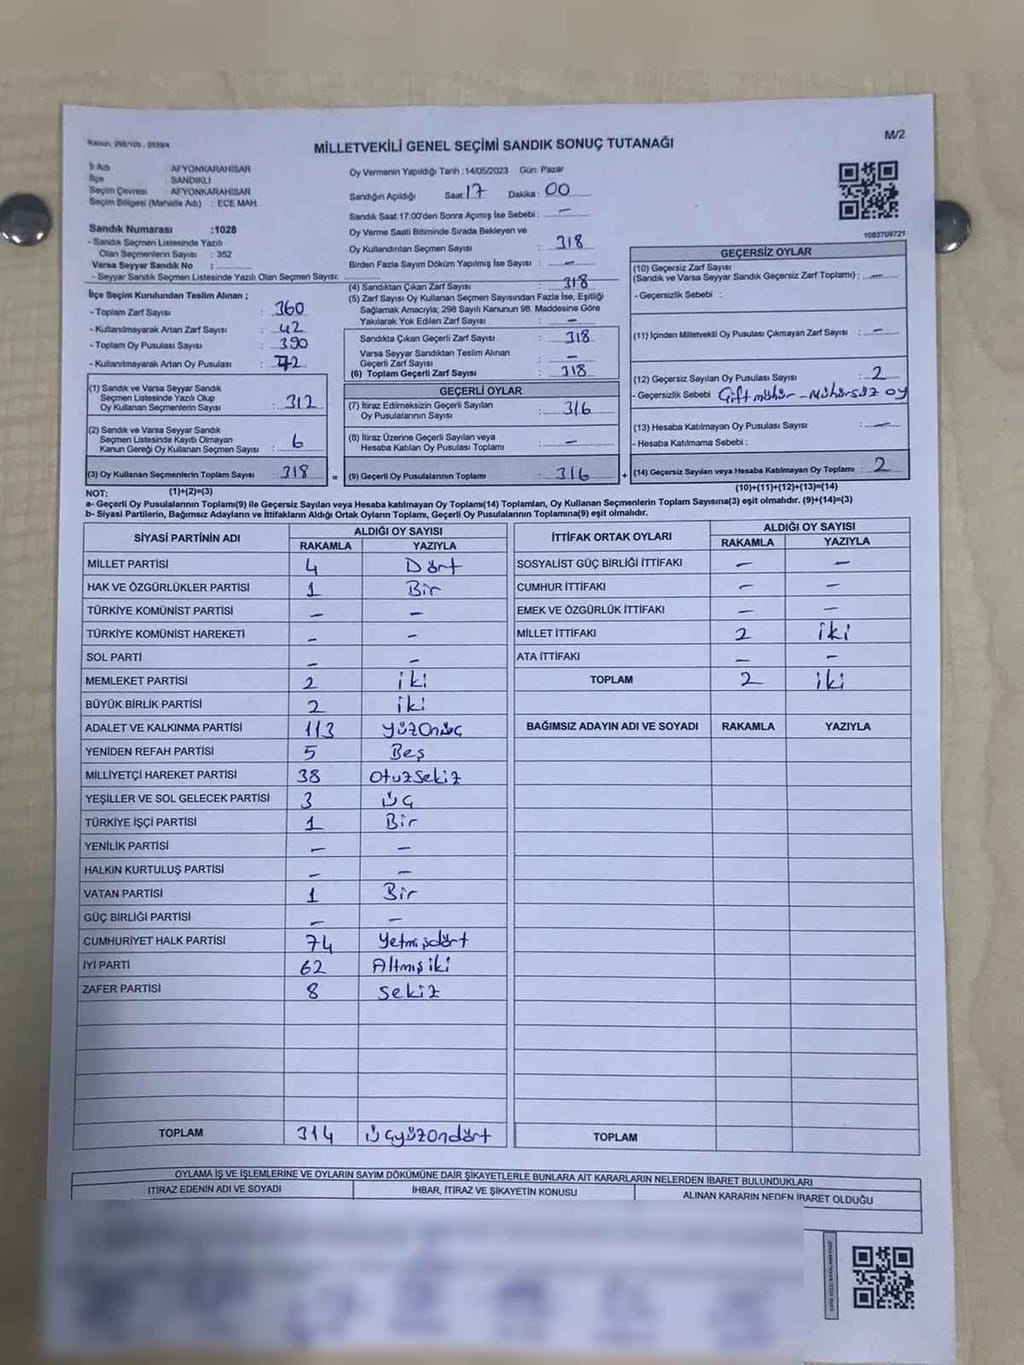 M/2
MİLLETVEKİLİ GENEL SEÇİMİ SANDIK SONUÇ TUTANAĞI
İl Adı : AFYONKARAHİSAR
İlçe : SANDIKLI
Seçim Çevresi : AFYONKARAHİSAR
Seçim Bölgesi (Mahalle Adı) : ECE MAH.
Sandık Numarası :1028
- Sandık Seçmen Listesinde Yazılı
Olan Seçmenlerin Sayısı : 352
Varsa Seyyar Sandık No :
- Seyyar Sandık Seçmen Listesinde Yazılı Olan Seçmen Sayısı:
İlçe Seçim Kurulundan Teslim Alınan ;
- Toplam Zarf Sayısı : 360
- Kullanılmayarak Artan Zarf Sayısı : 42
- Toplam Oy Pusulası Sayısı : 390
- Kullanılmayarak Artan Oy Pusulası : 72
(1) Sandık ve Varsa Seyyar Sandık
Seçmen Listesinde Yazılı Olup
Oy Kullanan Seçmenlerin Sayısı : 312
(2) Sandık ve Varsa Seyyar Sandık
Seçmen Listesinde Kayıtlı Olmayan
Kanun Gereği Oy Kullanan Seçmen Sayısı : 6
(3) Oy Kullanan Seçmenlerin Toplam Sayısı : 318
Oy Vermenin Yapıldığı Tarih :14/05/2023 Gün: Pazar
Sandığın Açıldığı Saat: 17 Dakika : 00
Sandık Saat 17:00'den Sonra Açımış İse Sebebi : —
Oy Verme Saati Bitiminde Sırada Bekleyen ve
Oy Kullandırılan Seçmen Sayısı : 318
Birden Fazla Sayım Döküm Yapılmış İse Sayısı : —
(4) Sandıktan Çıkan Zarf Sayısı : 318
(5) Zarf Sayısı Oy Kullanan Seçmen Sayısından Fazla İse, Eşitliği
Sağlamak Amacıyla; 298 Sayılı Kanunun 98. Maddesine Göre
Yakılarak Yok Edilen Zarf Sayısı : —
Sandıkta Çıkan Geçerli Zarf Sayısı : 318
Varsa Seyyar Sandıktan Teslim Alınan
Geçerli Zarf Sayısı : —
(6) Toplam Geçerli Zarf Sayısı : 318
GEÇERLİ OYLAR
(7) İtiraz Edilmeksizin Geçerli Sayılan
Oy Pusulalarının Sayısı : 316
(8) İtiraz Üzerine Geçerli Sayılan veya
Hesaba Katılan Oy Pusulası Toplamı : —
= (9) Geçerli Oy Pusulalarının Toplamı : 316
1083709721
GEÇERSİZ OYLAR
(10) Geçersiz Zarf Sayısı
(Sandık ve Varsa Seyyar Sandık Geçersiz Zarf Toplamı) : —
- Geçersizlik Sebebi :
(11) İçinden Milletvekili Oy Pusulası Çıkmayan Zarf Sayısı : —
(12) Geçersiz Sayılan Oy Pusulası Sayısı : 2
- Geçersizlik Sebebi Çift mühür - Mühürsüz oy
(13) Hesaba Katılmayan Oy Pusulası Sayısı : —
- Hesaba Katılmama Sebebi :
+ (14) Geçersiz Sayılan veya Hesaba Katılmayan Oy Toplamı : 2
NOT: (1)+(2)=(3)
(10)+(11)+(12)+(13)=(14)
a- Geçerli Oy Pusulalarının Toplamı(9) ile Geçersiz Sayılan veya Hesaba katılmayan Oy Toplamı(14) Toplamları, Oy Kullanan Seçmenlerin Toplam Sayısına(3) eşit olmalıdır. (9)+(14)=(3)
b- Siyasi Partilerin, Bağımsız Adayların ve İttifakların Aldığı Ortak Oyların Toplamı, Geçerli Oy Pusulalarının Toplamına(9) eşit olmalıdır.
SİYASİ PARTİNİN ADI ALDIĞI OY SAYISI
RAKAMLA YAZIYLA
MİLLET PARTİSİ 4 Dört
HAK VE ÖZGÜRLÜKLER PARTİSİ 1 Bir
TÜRKİYE KOMÜNİST PARTİSİ — —
TÜRKİYE KOMÜNİST HAREKETİ — —
SOL PARTİ — —
MEMLEKET PARTİSİ 2 iki
BÜYÜK BİRLİK PARTİSİ 2 iki
ADALET VE KALKINMA PARTİSİ 113 yüzonüç
YENİDEN REFAH PARTİSİ 5 Beş
MİLLİYETÇİ HAREKET PARTİSİ 38 otuzsekiz
YEŞİLLER VE SOL GELECEK PARTİSİ 3 üç
TÜRKİYE İŞÇİ PARTİSİ 1 Bir
YENİLİK PARTİSİ — —
HALKIN KURTULUŞ PARTİSİ — —
VATAN PARTİSİ 1 Bir
GÜÇ BİRLİĞİ PARTİSİ — —
CUMHURİYET HALK PARTİSİ 74 Yetmişdört
İYİ PARTİ 62 Altmışiki
ZAFER PARTİSİ 8 sekiz
TOPLAM 314 üçyüzondört
İTTİFAK ORTAK OYLARI ALDIĞI OY SAYISI
RAKAMLA YAZIYLA
SOSYALİST GÜÇ BİRLİĞİ İTTİFAKI — —
CUMHUR İTTİFAKI — —
EMEK VE ÖZGÜRLÜK İTTİFAKI — —
MİLLET İTTİFAKI 2 iki
ATA İTTİFAKI — —
TOPLAM 2 iki
BAĞIMSIZ ADAYIN ADI VE SOYADI RAKAMLA YAZIYLA
TOPLAM
OYLAMA İŞ VE İŞLEMLERİNE VE OYLARIN SAYIM DÖKÜMÜNE DAİR ŞİKAYETLERLE BUNLARA AİT KARARLARIN NELERDEN İBARET BULUNDUKLARI
İTİRAZ EDENİN ADI VE SOYADI İHBAR, İTİRAZ VE ŞİKAYETİN KONUSU ALINAN KARARIN NEDEN İBARET OLDUĞU